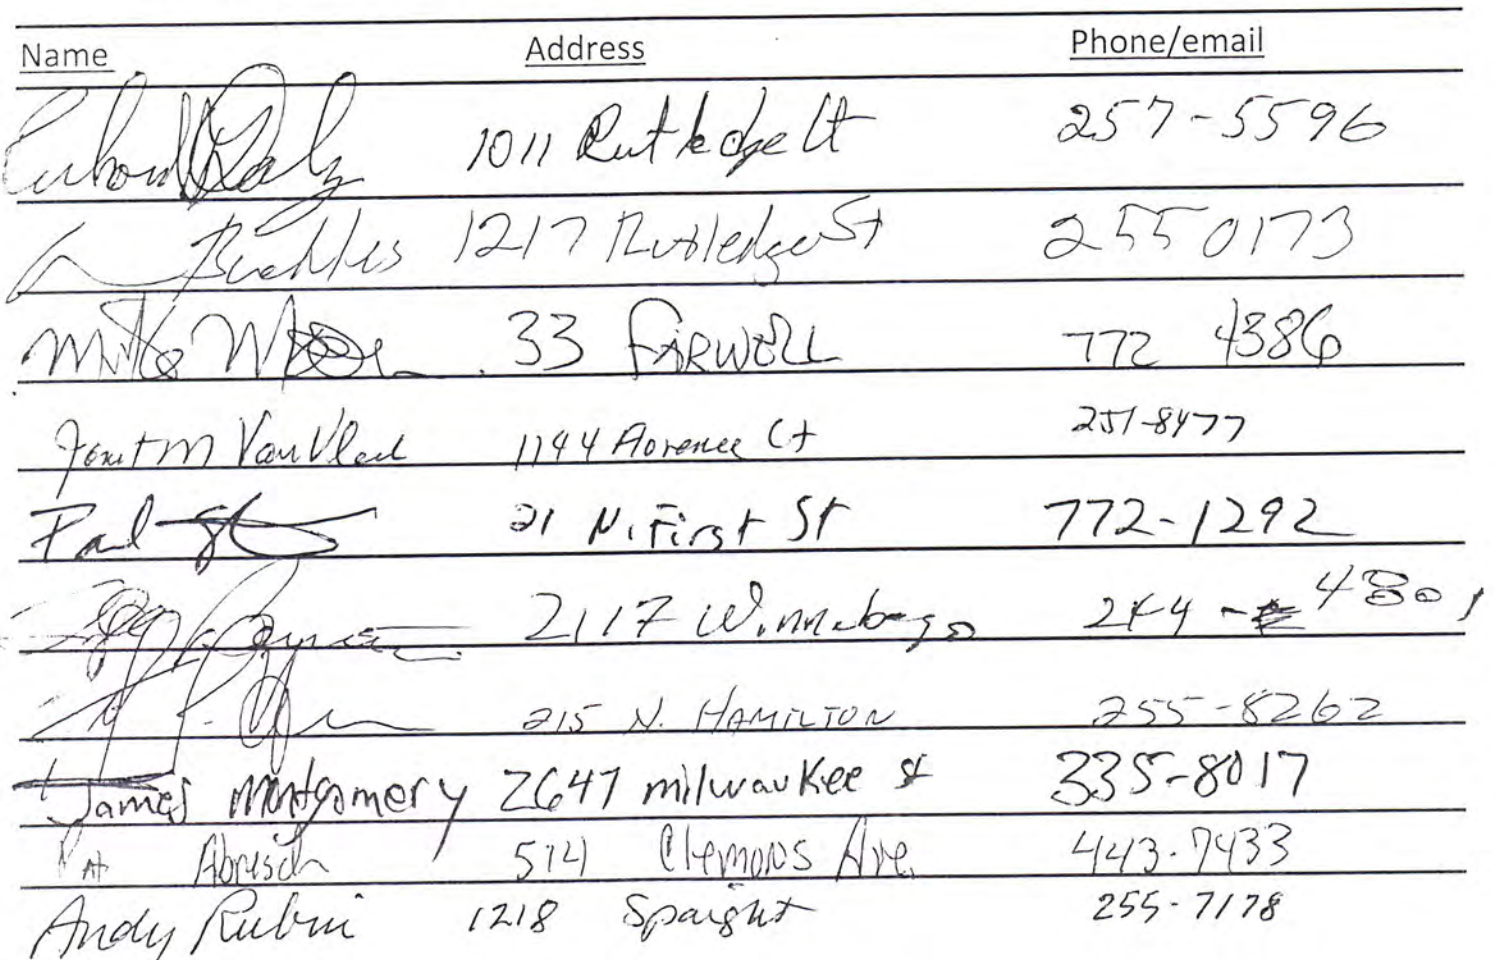 Name Address Phone/email
1011 Rutledge Ct 257-5596
1217 Rutledge St 255 0173
Mike 33 FARWELL 772 4386
Janet M Van Vleck 1144 Florence Ct 251-8477
Paul 21 N. First St 772-1292
2117 Winnebago 244-4801
215 N. HAMILTON 255-8262
James Montgomery 2647 milwaukee st 335-8017
Pat Abresch 514 Clemons Ave. 443-7433
Andy Rubin 1218 Spaight 255-7178